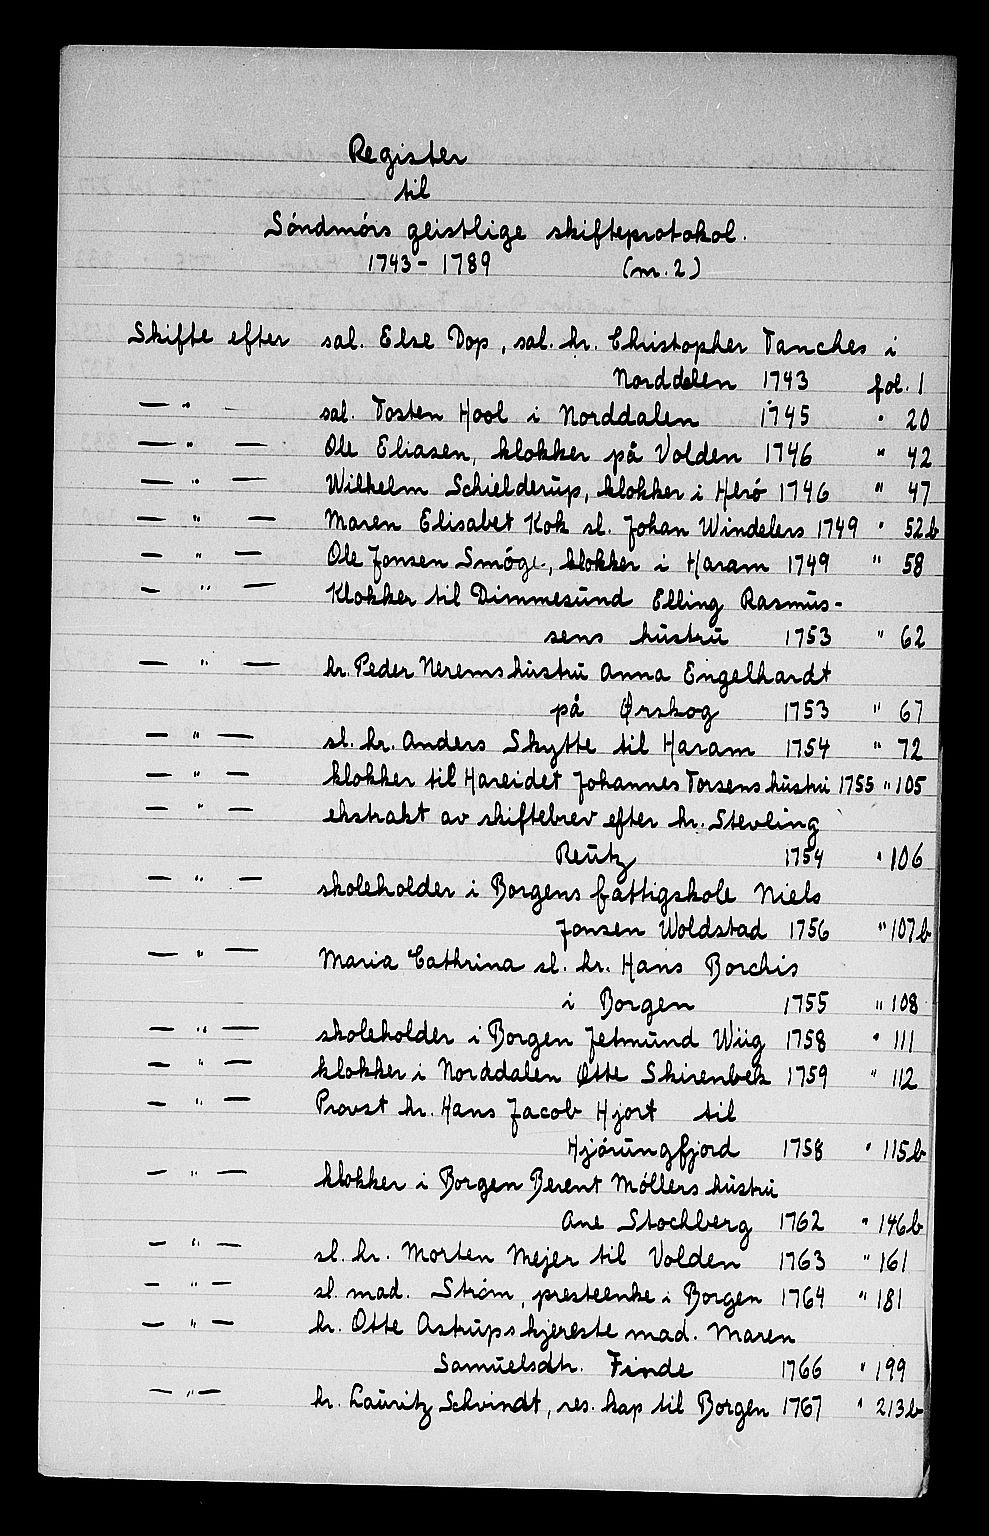 Register
til
Söndmörs geistlige skifteprotokol.
1743 - 1789 (nr. 2)
Skifte efter sal. Else Dop, sal. hr. Christopher Tanches i
Norddalen 1743 fol. 1
— " — sal. Tosten Hool i Norddalen 1745 " 20
— " — Ole Eliasen, klokker på Volden 1746 " 42
— " — Wilhelm Schielderup, klokker i Herö 1746 " 47
— " — Maren Elisabet Kok sl. Johan Windelers 1749 " 52b
— " — Ole Jonsen Smöge, klokker i Haram 1749 " 58
— " — Klokker til Dimmesund Elling Rasmus-
sens hustru 1753 " 62
— " — hr. Peder Nerems hustru Anna Engelhardt
på Ørskog 1753 " 67
— " — sl. hr. Anders Skytte til Haram 1754 " 72
— " — klokker til Hareidet Johannes Torsens hustru 1755 " 105
— " — ekstrakt av skiftebrev efter hr. Stevling
Reutz 1754 " 106
— " — skoleholder i Borgens fattigskole Niels
Jonsen Woldstad 1756 " 107b
— " — Maria Cathrina sl. hr. Hans Borchis
i Borgen 1755 " 108
— " — skoleholder i Borgen Jetmund Wiig 1758 " 111
— " — klokker i Norddalen Otte Skirenbek 1759 " 112
— " — Provst hr. Hans Jacob Hjort til
Hjörungfjord 1758 " 115b
— " — klokker i Borgen Berent Möllers hustru
Ane Stochberg 1762 " 146b
— " — sl. hr. Morten Mejer til Volden 1763 " 161
— " — sl. mad. Ström, presteenke i Borgen 1764 " 181
— " — hr. Otte Astrups kjereste mad. Maren
Samuelsdtr. Finde 1766 " 199
— " — hr. Lauritz Schvindt, res. kap til Borgen 1767 " 213b